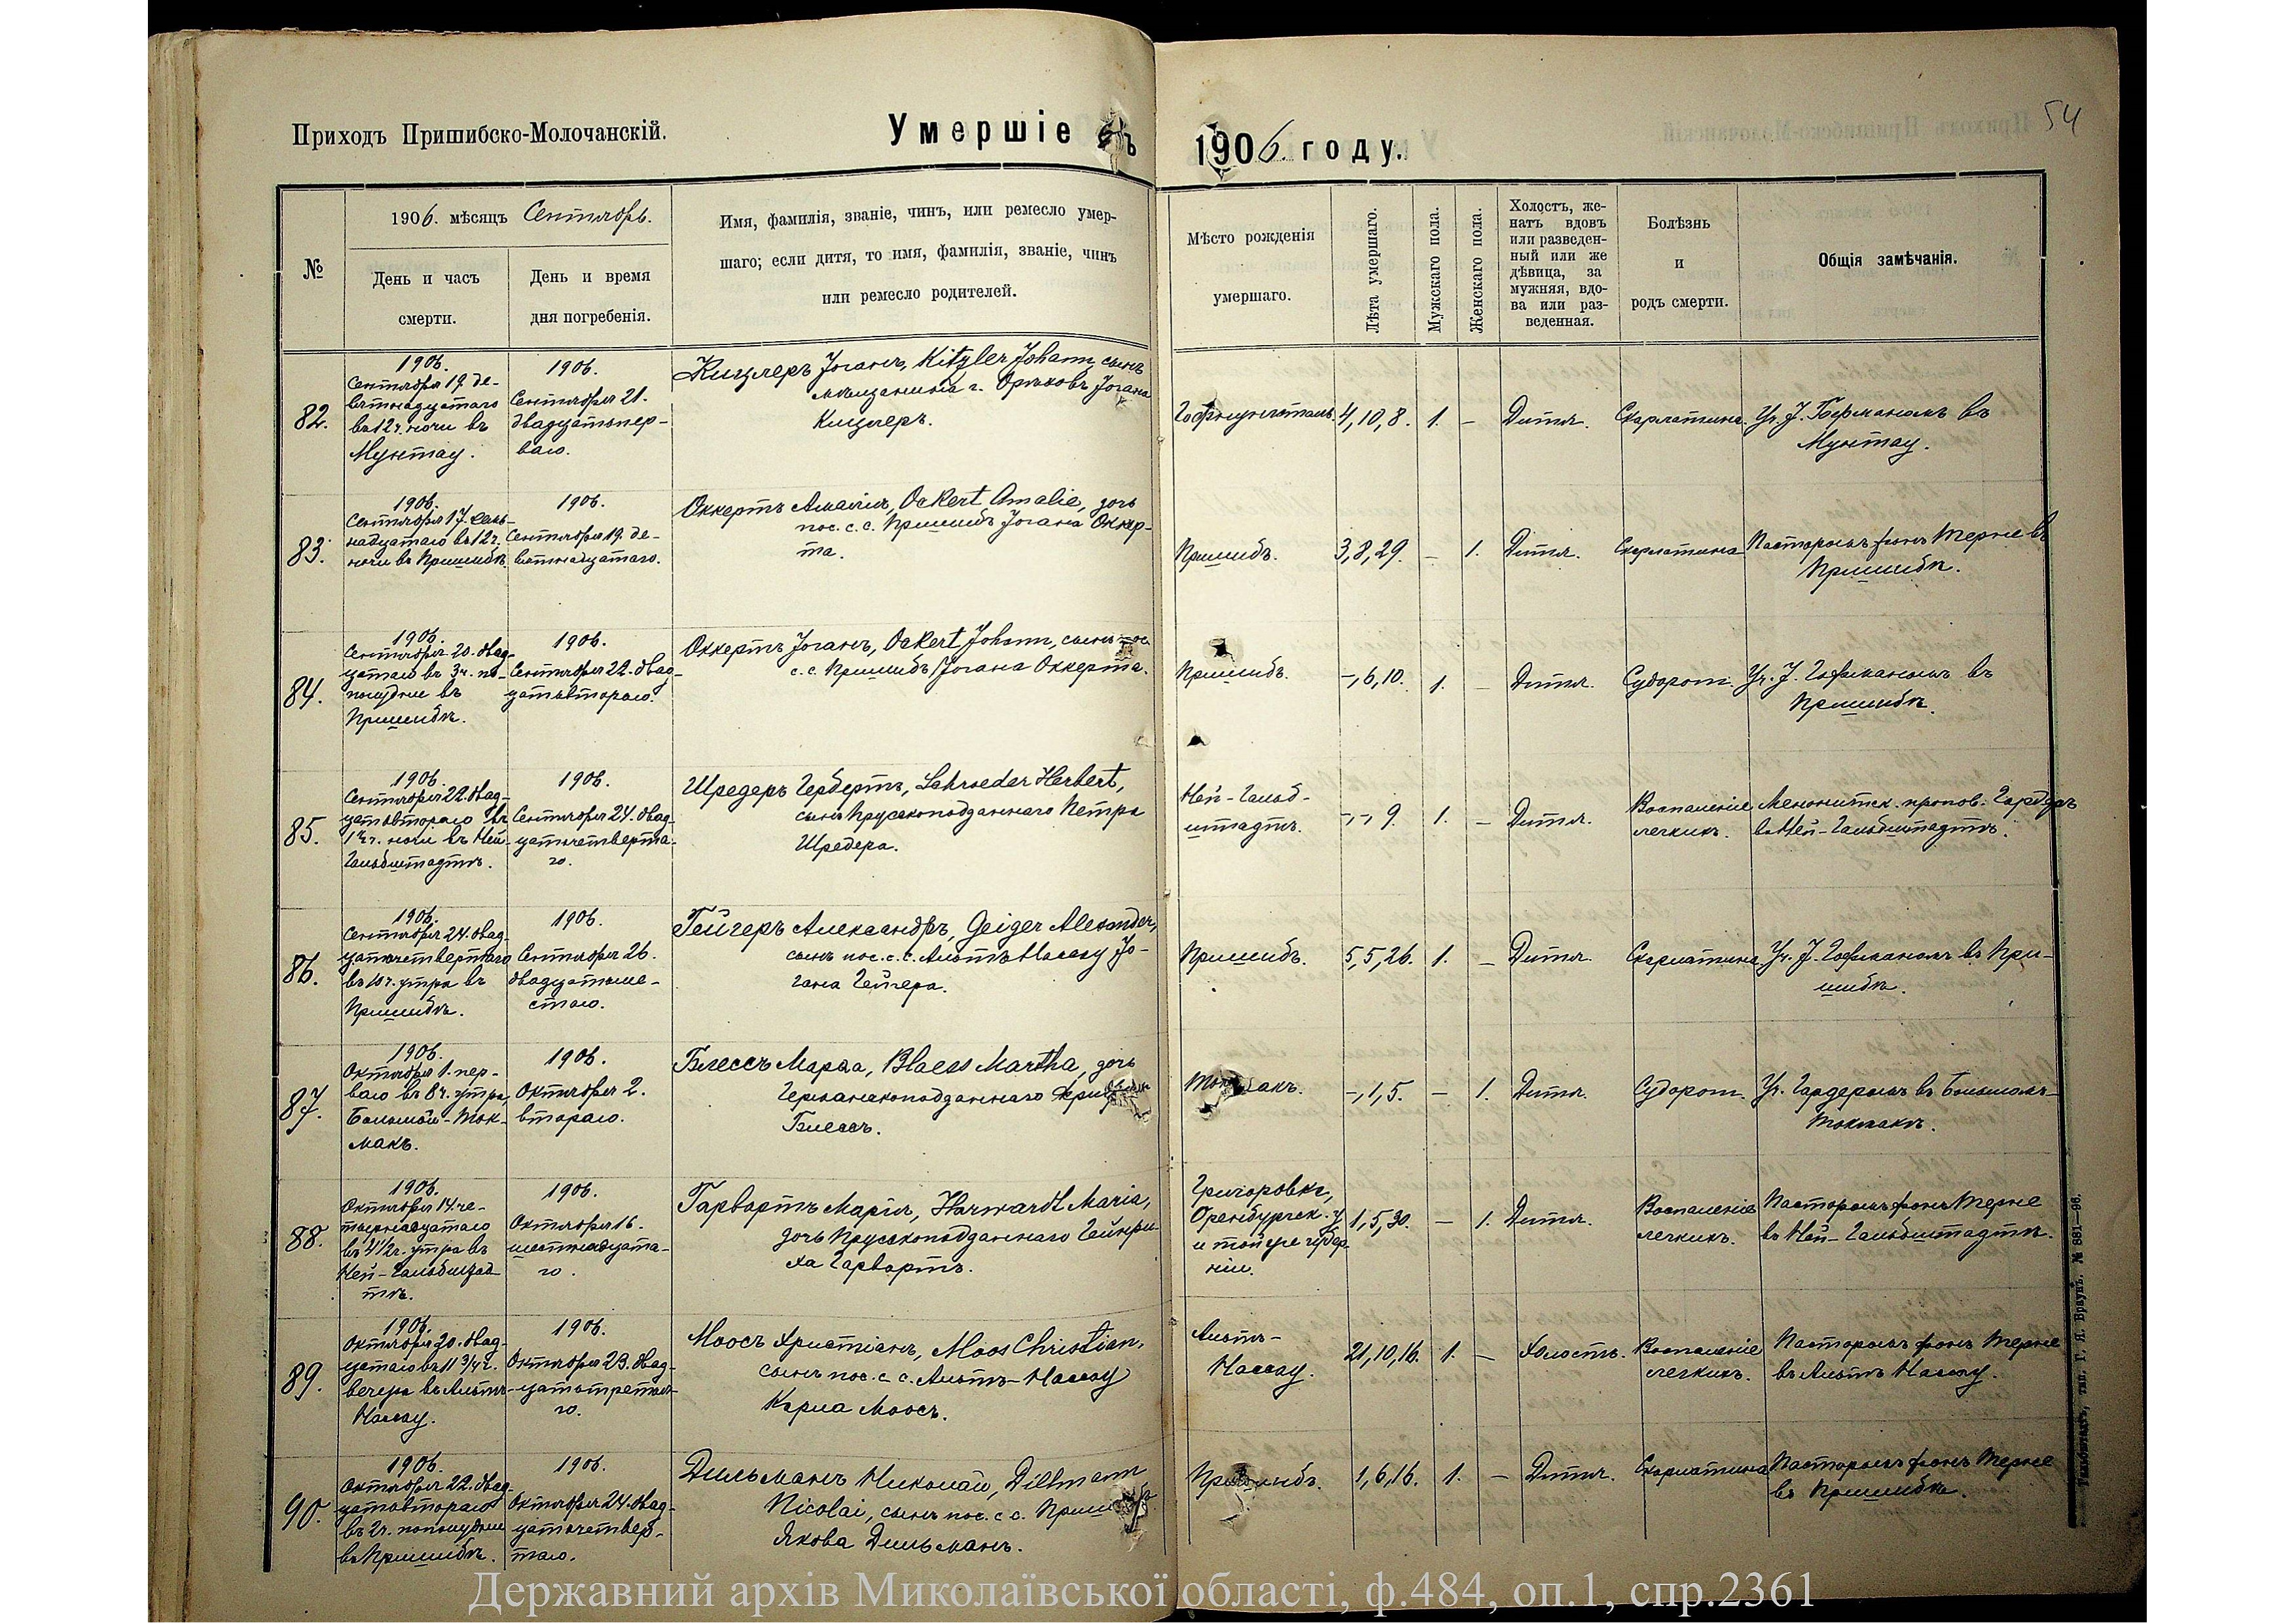 54
Приходъ Пришибско-Молочанскій.
Умершіе въ 1906. году.
№
1906. мѣсяцъ Сентябрь.
День и часъ
смерти.
День и время
дня погребенія.
Имя, фамилія, званіе, чинъ, или ремесло умер-
шаго; если дитя, то имя, фамилія, званіе, чинъ
или ремесло родителей.
Мѣсто рожденія
умершаго.
Лѣта умершаго.
Мужскаго пола.
Женскаго пола.
Холостъ, же-
натъ вдовъ
или разведен-
ный или же
дѣвица, за
мужняя, вдо-
ва или раз-
веденная.
Болѣзнь
и
родъ смерти.
Общія замѣчанія.
82.
1906.
Сентября 19. де-
вятнадцатаго
въ 12 ч. ночи въ
Мунтау.
1906.
Сентября 21.
двадцатьпер-
ваго.
Кицлеръ Іоганъ, Kitzler Johann, сынъ
мѣщанина г. Орѣховъ Іогана
Кицлеръ.
4,10,8.
1.
–
Дитя.
Скарлатина.
Уч. J. Гофманомъ въ
Мунтау.
83.
1906.
Сентября 17. семь-
надцатаго въ 12 ч.
ночи въ Пришибѣ.
1906.
Сентября 19. де-
вятнадцатаго.
Оккертъ Амалія, Ockert Amalie, дочь
пос. с. с. Пришибъ Іогана Оккер-
та.
Пришибъ.
3,8,29.
–
1.
Дитя.
Скарлатина
Пасторомъ фонъ Терне въ
Пришибѣ.
84.
1906.
Сентября 20. двад-
цатаго въ 3 ч. по-
полудни въ
Пришибѣ.
1906.
Сентября 22. двад-
цатьвтораго.
Оккертъ Іоганъ, Ockert Johann, сынъ пос.
с. с. Пришибъ Іогана Оккерта.
Пришибъ.
-,6,10.
1.
–
Дитя.
Судорог.
Уч. J. Гофманомъ въ
Пришибѣ.
85.
1906.
Сентября 22. двад-
цатьвтораго въ
1 ½ ч. ночи въ Ней-
Гальбштадтѣ.
1906.
Сентября 24. двад-
цатьчетверта-
го.
Шредеръ Гербертъ, Schroeder Herbert,
сынъ Прусскоподданнаго Петра
Шредера.
Ней-Гальб-
штадтъ.
-,-,9.
1.
–
Дитя.
Воспаленіе
легкихъ.
Менонитск. пропов.
въ Ней-Гальбштадтѣ.
86.
1906.
Сентября 24. двад-
цатьчетвертаго
въ 10 ч. утра въ
Пришибѣ.
1906.
Сентября 26.
двадцатьше-
стаго.
Гейгеръ Александръ, Geiger Alexander,
сынъ пос. с. с. Альтъ Нассау Іо-
гана Гейгера.
Пришибъ.
5,5,26.
1.
–
Дитя.
Скарлатина
Уч. J. Гофманомъ въ При-
шибѣ.
87.
1906.
Октября 1. пер-
ваго въ 8 ч. утра,
Большой-Ток-
макъ.
1906.
Октября 2.
втораго.
Блессъ Марѳа, Blaess Martha, дочь
Германскоподданнаго
Блессъ.
Токмакъ.
-,1,5.
–
1.
Дитя.
Судорог.
Уч. Гардеромъ въ Большомъ-
Токмакѣ.
88.
1906.
Октября 14. че-
тырнадцатаго
въ 4 ½ ч. утра въ
Ней-Гальбштад-
тѣ.
1906.
Октября 16.
шестнадцата-
го.
Гарвартъ Марія, Harwardt Maria,
дочь Прусскоподданнаго Гейнри-
ха Гарвартъ.
Григоровка,
Оренбургск. у.
и той же губер-
ніи.
1,5,30.
–
1.
Дитя.
Воспаленіе
легкихъ.
Пасторомъ фонъ Терне
въ Ней-Гальбштадтѣ.
89.
1906.
Октября 20. двад-
цатаго въ 11 ¾ ч.
вечера въ Альтъ-
Нассау.
1906.
Октября 23. двад-
цатьтретья-
го.
Моосъ Христіанъ, Moos Christian,
сынъ пос. с. с. Альтъ-Нассау
Карла Моосъ.
Альтъ-
Нассау.
21,10,16.
1.
–
Холостъ.
Воспаленіе
легкихъ.
Пасторомъ фонъ Терне
въ Альтъ Нассау.
90.
1906.
Октября 22. двад-
цатьвтораго
въ 2 ч. пополудни
въ Пришибѣ.
1906.
Октября 24. двад-
цатьчетвер-
таго.
Дильманъ Николай, Dillmann
Nicolai, сынъ пос. с. с. Пришибъ
Якова Дильманъ.
Пришибъ.
1,6,16.
1.
–
Дитя.
Скарлатина
Пасторомъ фонъ Терне
въ Пришибѣ.
Гальбштадтъ, тип. Г. Я. Браунъ. № 881—96.
Державний архів Миколаївської області, ф.484, оп.1, спр.2361